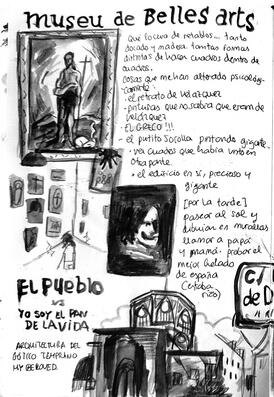 museu de Belles arts
Que locura de retablos... tanto
dorado y madera. tantas formas
distintas de hacer cuadros dentro de
cuadros.
Cosas que me han alterado psicologi-
camente:
- el retrato de Velázquez
- pinturas que no sabía que eran de
velázquez
- EL GRECO!!!
- el putito Sorolla pintando gigante.
- ver cuadros que había visto en
otra parte.
- el edificio en sí, precioso y
gigante
[por la tarde]
pasear al sol y
dibujar en murallas
llamar a papá
y mamá. probar el
mejor helado
de españa
(estaba
rico)
EL PUEBLO
vs
YO SOY EL PAN
DE LA VIDA
ARQUITECTURA DEL
GÓTICO TEMPRANO
MY BELOVED.
de D